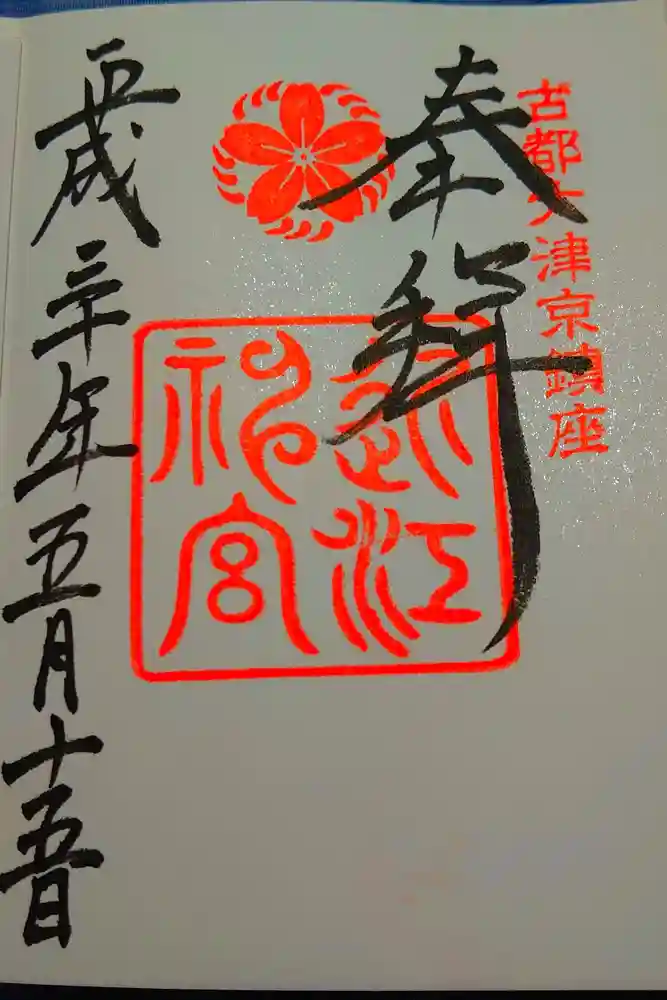 古都大津京鎮座
奉拝
近江
神宮
平成三十年五月十五日